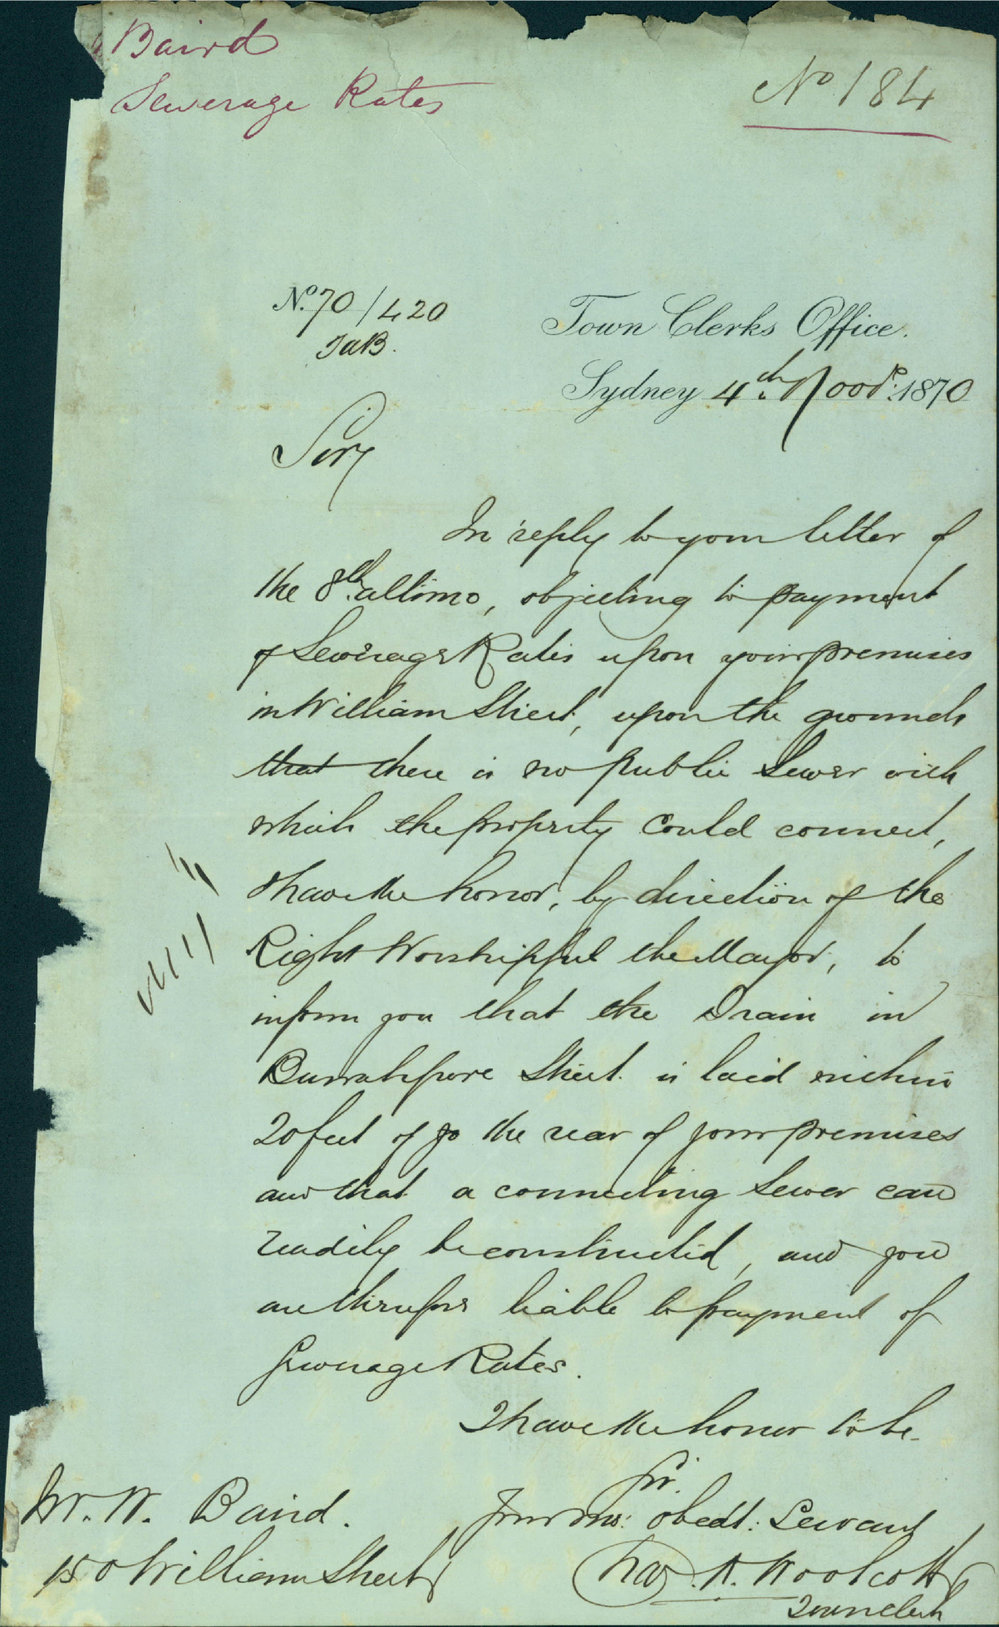 Baird
Sewerage Rates
No 184
No. 70/420
Town Clerks Office.
Sydney 4th Novr. 1870
Sir,
In reply to your letter of
the 8th ultimo, objecting to payment
of Sewerage Rates upon your premises
in William Street, upon the grounds
that there is no public Sewer with
which the property could connect,
I have the honor, by direction of the
Right Worshipful the Mayor, to
inform you that the Drain in
Burrahpore Street is laid within
20 feet of the rear of your premises
and that a connecting Sewer can
readily be constructed, and you
are therefore liable to payment of
Sewerage Rates.
I have the honor to be
Sir.
Your Mo: obedt: Servant
Chas. H. Woolcott
Town Clerk
Mr. W. Baird.
150 William Street